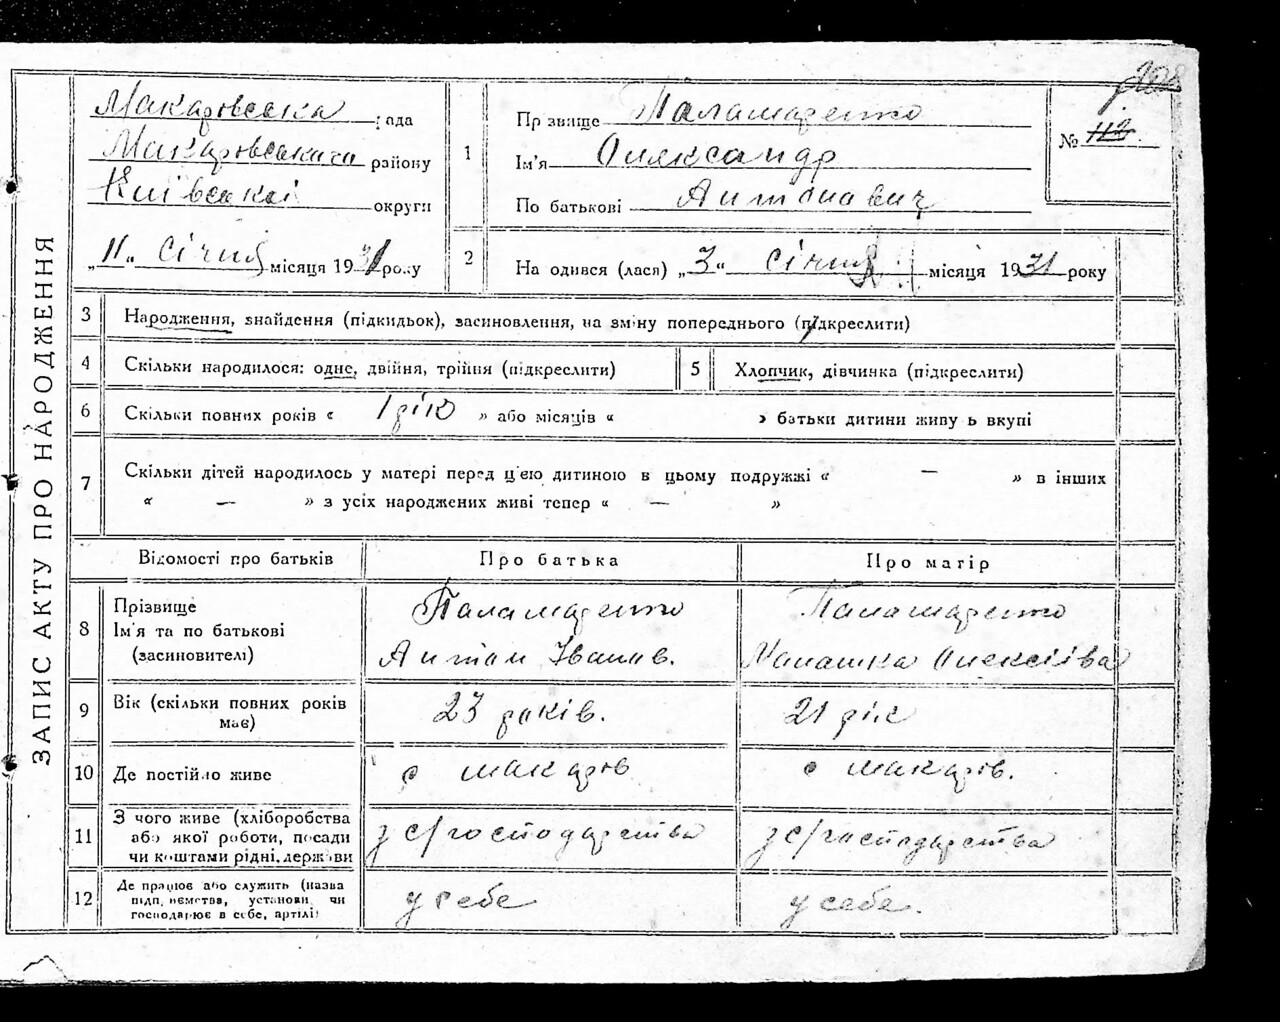 ЗАПИС АКТУ ПРО НАРОДЖЕННЯ
Макарівська рада
Макарівського району
Київської округи
„11“ Січня місяця 1931 року
1
Прізвище Паламаренко
Ім'я Олександр
По батькові Антонович
№ 112
2
На одився (лася) „3“ січня місяця 1931 року
3 Народження, знайдення (підкидьок), засиновлення, на зміну попереднього (підкреслити)
4 Скільки народилося: одне, двійня, трійня (підкреслити)
5 Хлопчик, дівчинка (підкреслити)
6 Скільки повних років « 1 рік » або місяців « » батьки дитини живу ь вкупі
7 Скільки дітей народилось у матері перед ц'ею дитиною в цьому подружжі « — » в інших
« — » з усіх народжених живі тепер « — »
Відомості про батьків Про батька Про матір
8 Прізвище
Ім'я та по батькові
(засиновителі)
Паламаренко
Антон Іванов.
Паламаренко
Малашка Олексіїва
9 Вік (скільки повних років
має)
23 років.
21 рік
10 Де постійно живе
с Макарів
с Макарів.
11 З чого живе (хліборобства
або якої роботи, посади
чи коштами рідні, держави
з с/господарства
з с/господарства
12 Де працює або служить (назва
підп. иємства, установи чи
господарює в себе, артілі)
у себе
у себе.